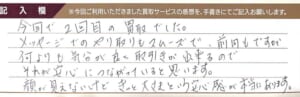 記入欄 ※今回ご利用いただきました買取サービスの感想を、手書きにてご記入お願いします。
今回で2回目の買取でした。
メッセージでのやり取りもスムーズで、前回もですが
何よりも気分が良い取引きが出来るので
それが安心につながっていると思います。
顔が見えないけど きっと大丈夫という安心感が本当にあります。